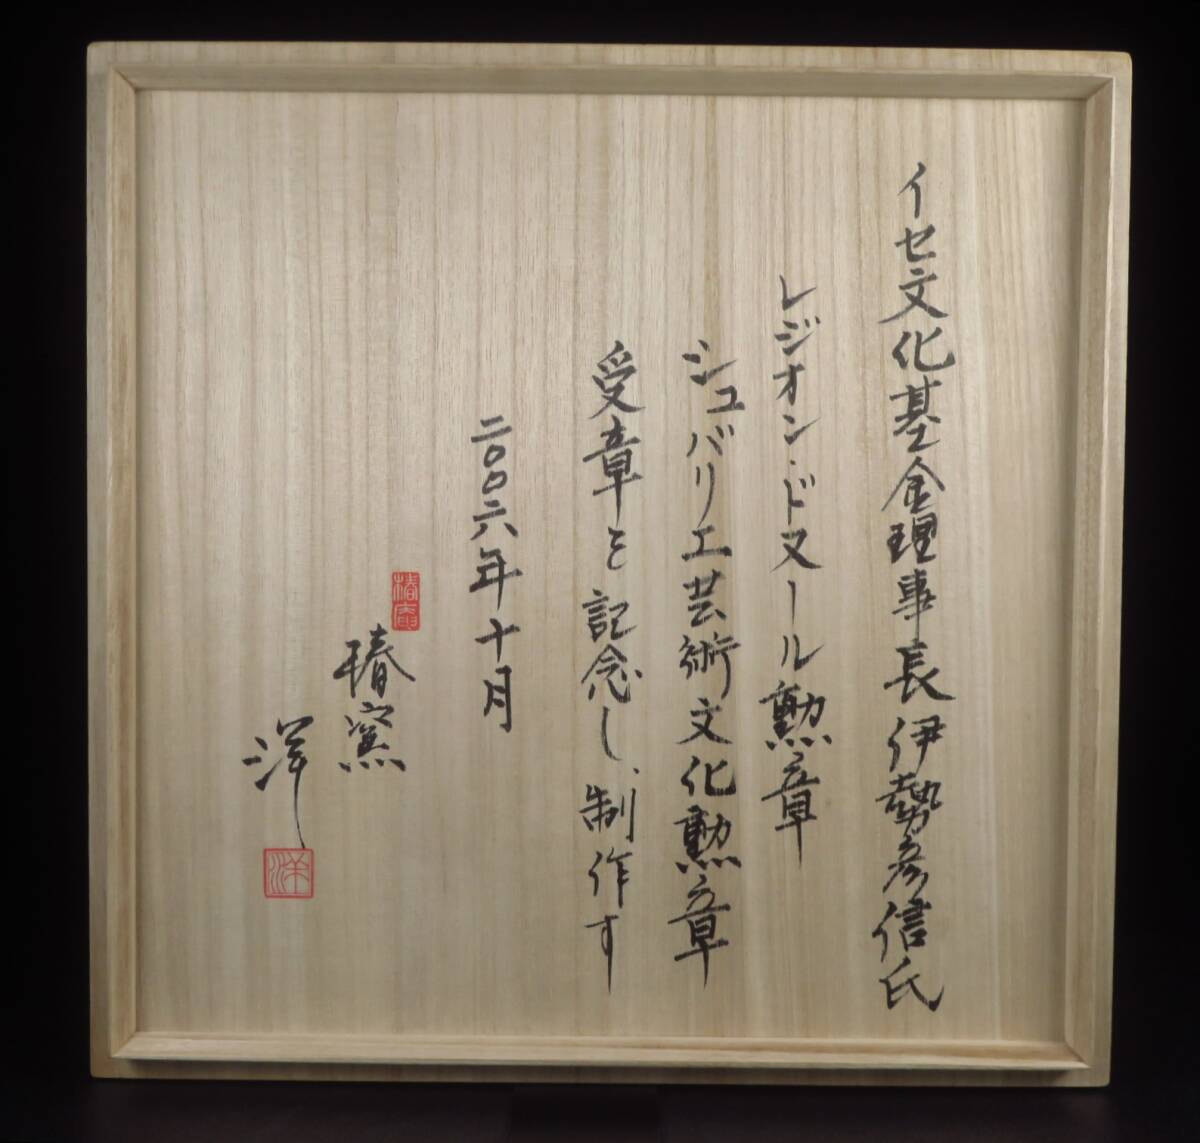 イセ文化基金理事長伊勢彦信氏
レジオン・ドヌール勲章
シュバリエ芸術文化勲章
受章を記念し、制作す
二〇〇六年十月
椿窯
椿窯
洋
洋